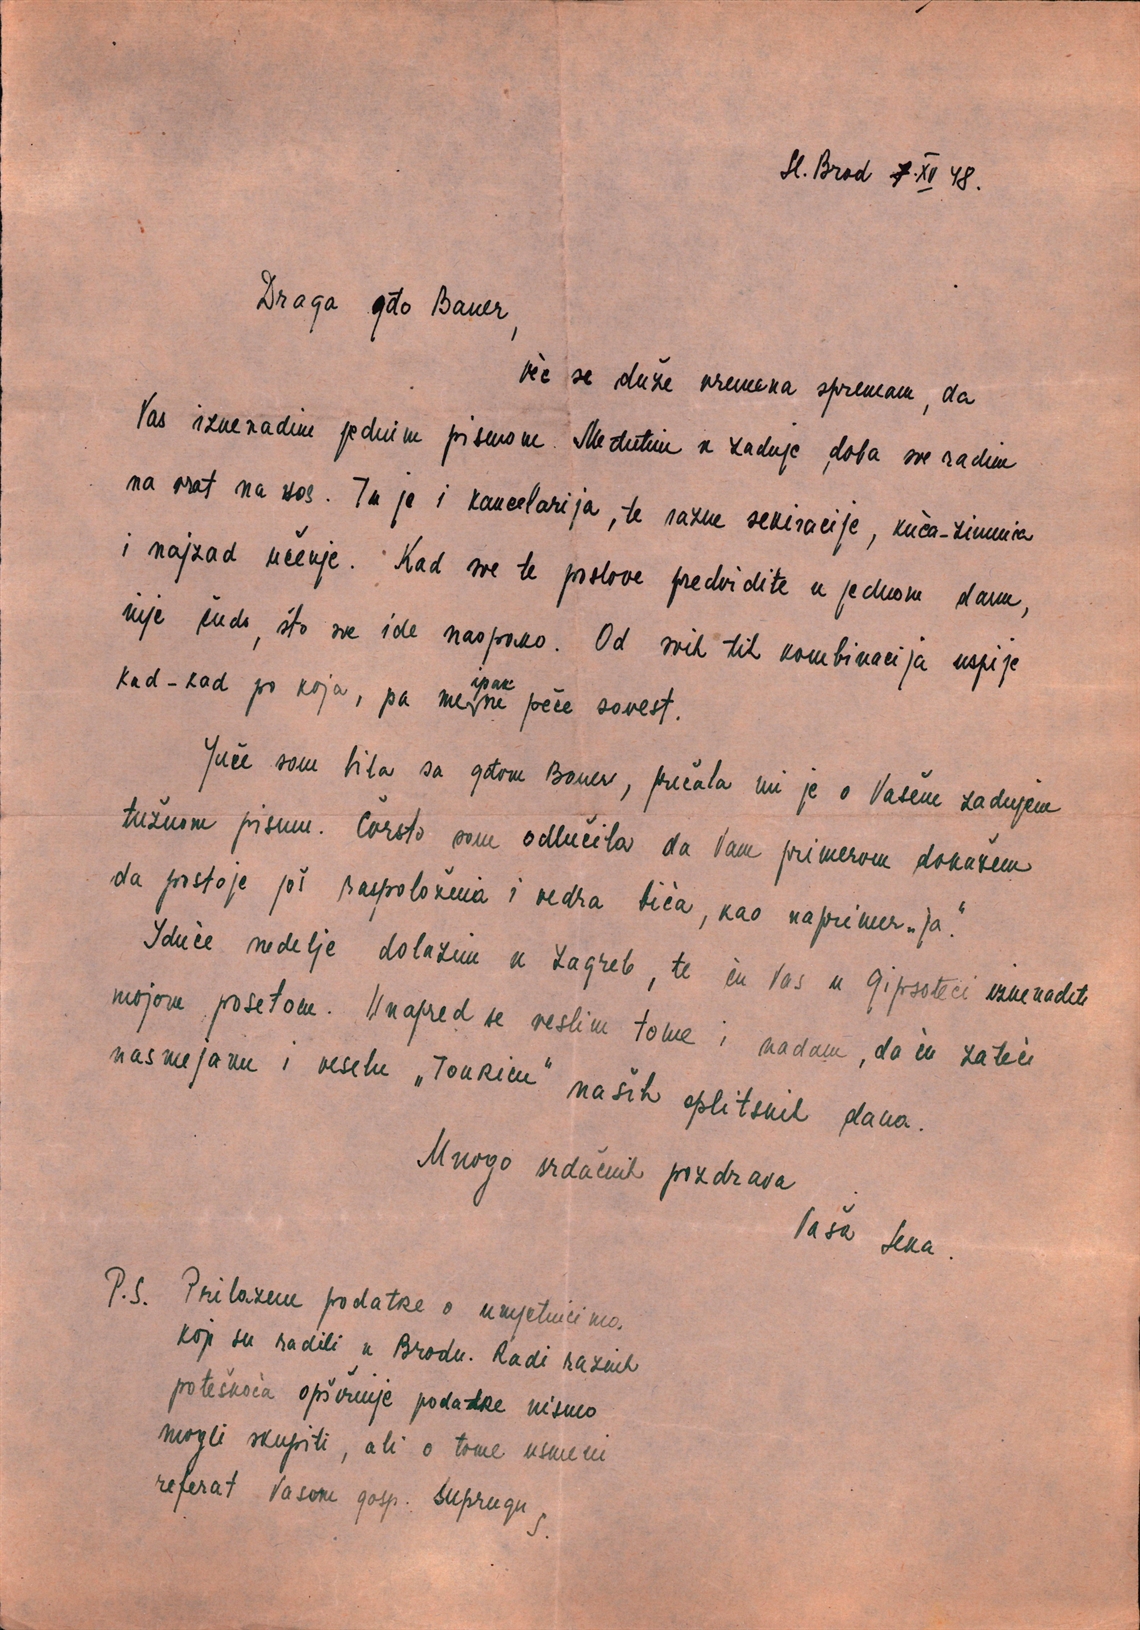 Sl. Brod 7. XII 48.
Draga gđo Bauer,
već se duže vremena spremam, da
Vas iznenadim jednim pismom. Međutim u zadnje doba sve radim
na vrat na nos. Tu je i kancelarija, te razne sekiracije, kuća-zimnica
i najzad učenje. Kad sve te poslove predvidite u jednom danu,
nije čudo, što sve ide naopako. Od svih tih kombinacija uspije
kad-kad po koja, pa me ipak ne peče sovest.
Juče sam bila sa gđom Bauer, pričala mi je o Vašem zadnjem
tužnom pismu. Čvrsto sam odlučila da Vam primerom dokažem
da postoje još raspoložena i vedra bića, kao naprimer „ja“.
Iduće nedelje dolazim u Zagreb, te ću Vas u Gipsoteci iznenaditi
mojom posetom. Unapred se veslim tome i nadam, da ću zateći
nasmejanu i veselu „Tonkicu“ naših splitskih dana.
Mnogo srdačnih pozdrava
Vaša Seka.
P.S. Prilažem podatke o umjetnicima
koji su radili u Brodu. Radi raznih
poteškoća opširnije podatke nismo
mogli skupiti, ali o tome usmeni
referat Vašom gosp. suprugu
S.